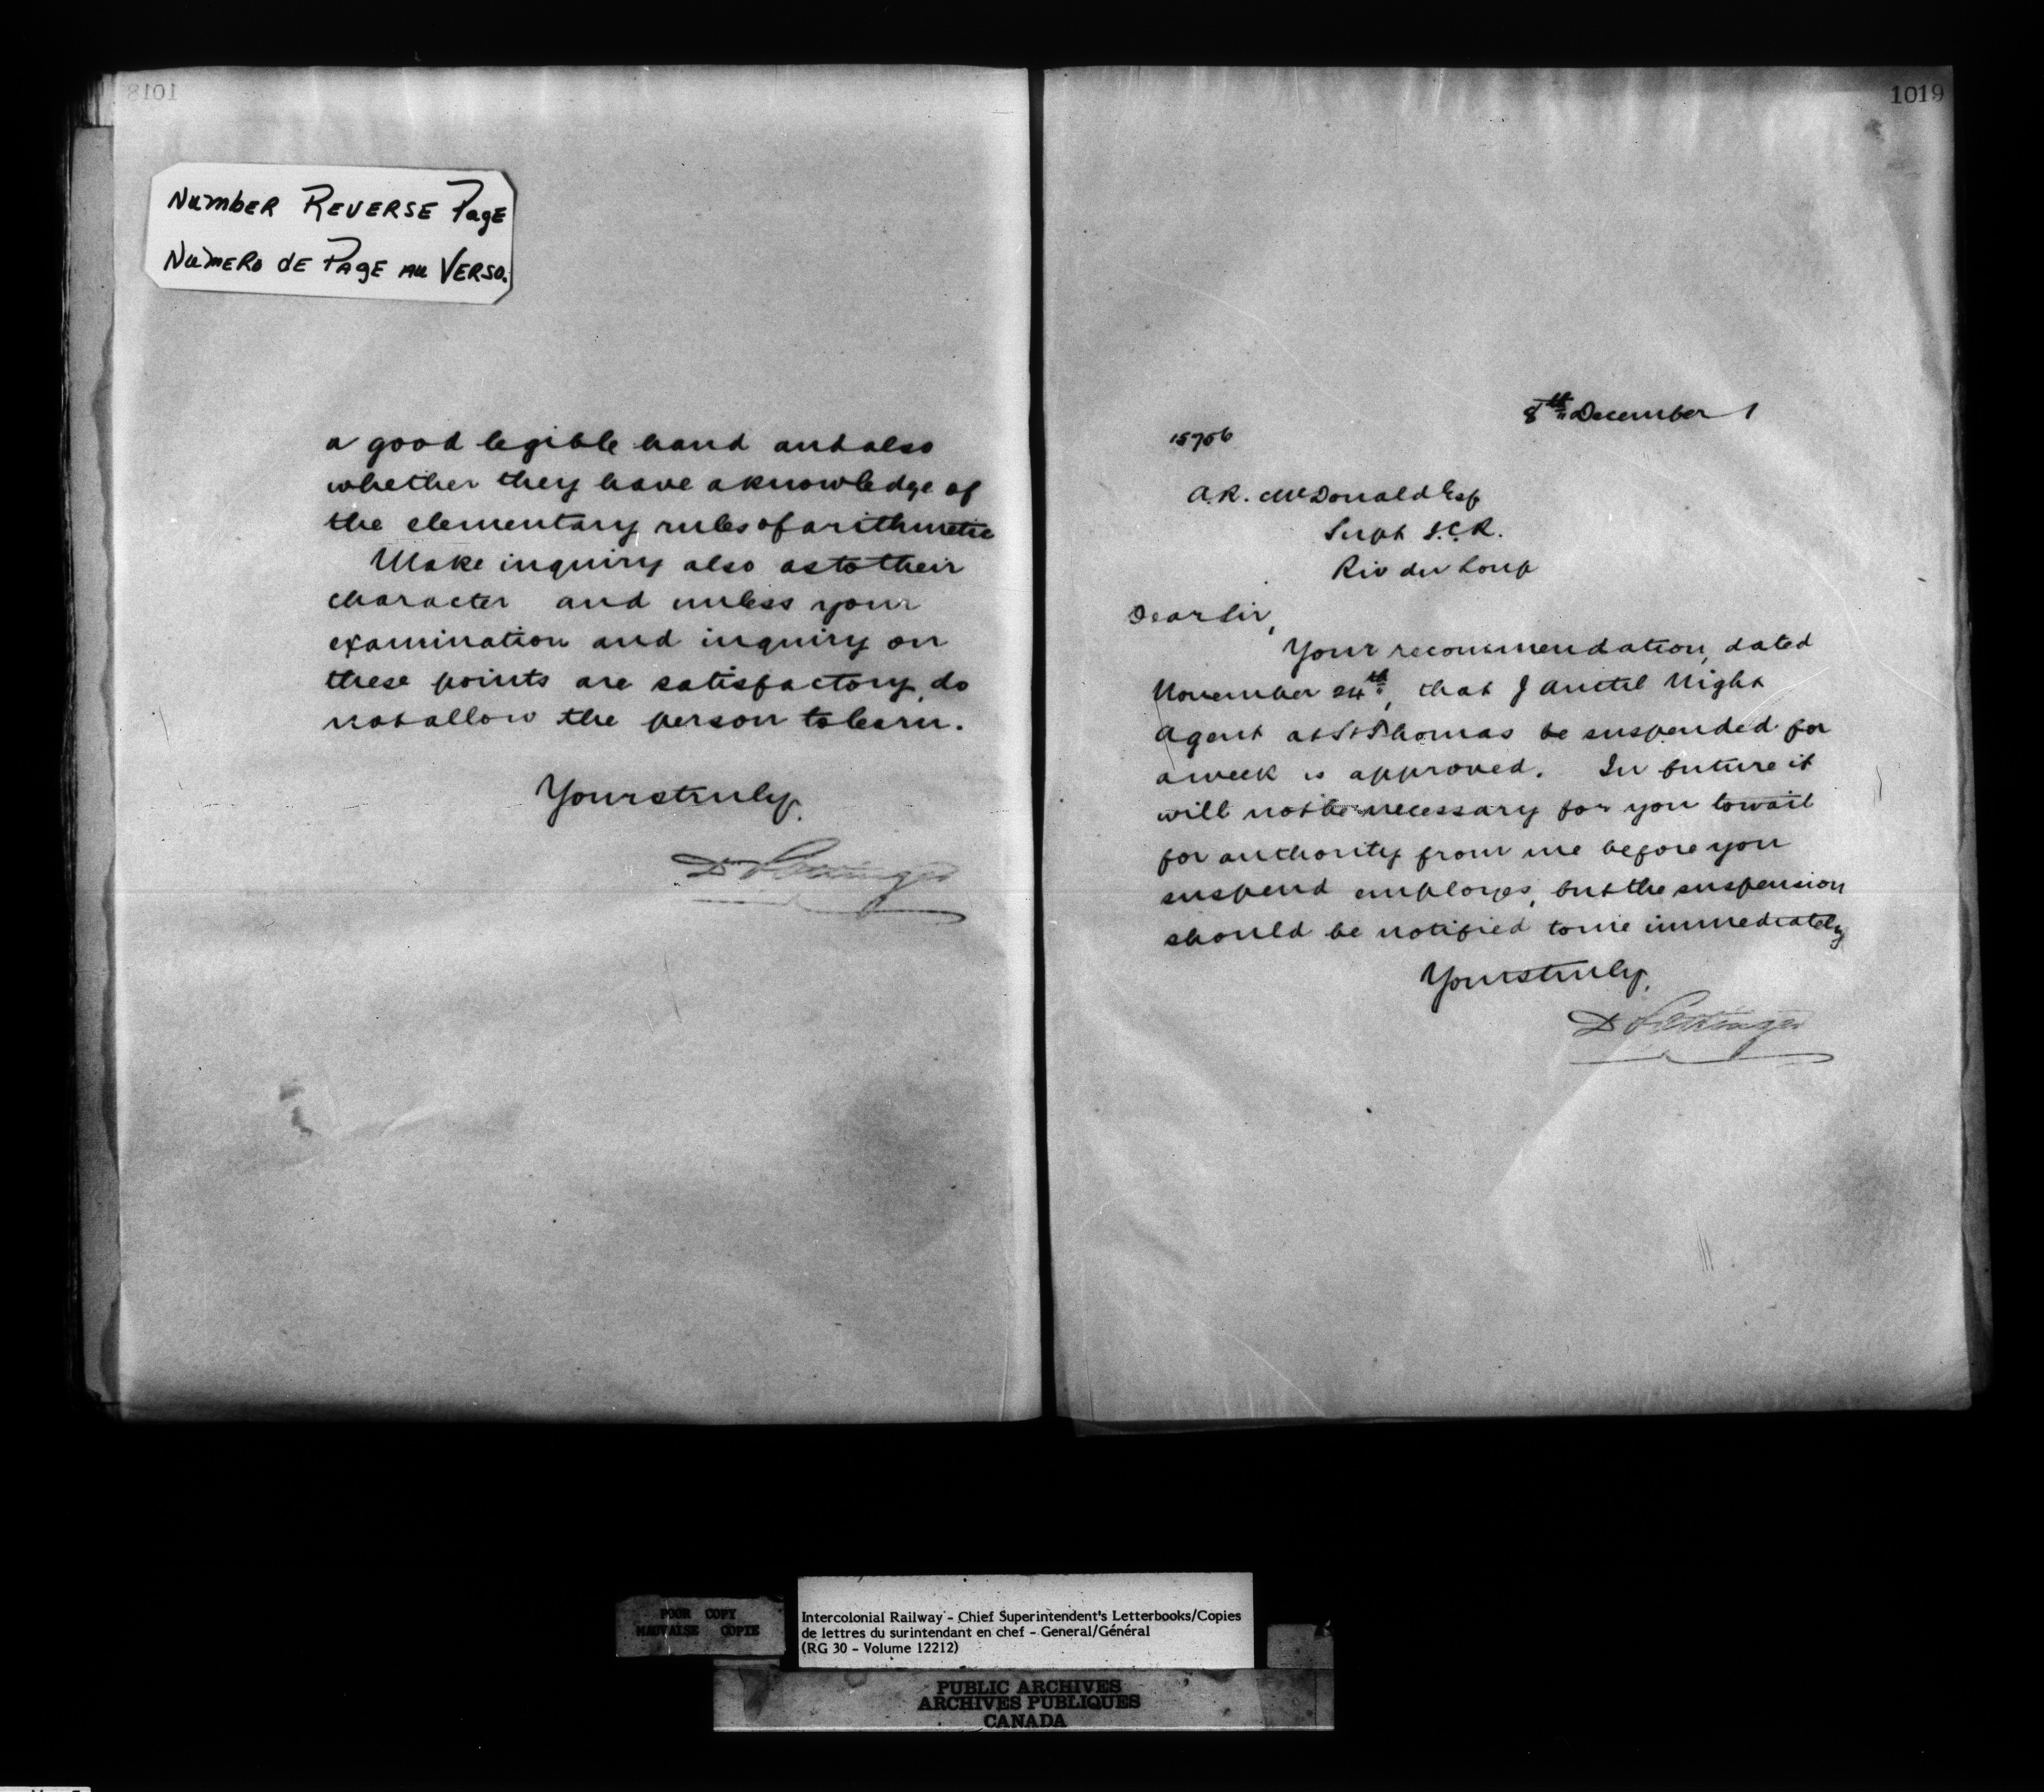 1018
Number Reverse Page
Numero de Page au Verso.
a good legible hand and also
whether they have a knowledge of
the elementary rules of arithmetic
Make inquiry also as to their
character and unless your
examination and inquiry on
these points are satisfactory, do
not allow the person to learn.
Yours truly,
D Pottinger
1019
8th December 1
15706
A.R. McDonald Esq
Supt I.C.R.
Riv du Loup
Dear Sir,
Your recommendation, dated
November 24th, that J Anctil Night
Agent at St Thomas be suspended for
a week is approved. In future it
will not be necessary for you to wait
for authority from me before you
suspend employes, but the suspension
should be notified to me immediately
Yours truly,
D Pottinger
POOR COPY
MAUVAISE COPIE
Intercolonial Railway - Chief Superintendent's Letterbooks/Copies
de lettres du surintendant en chef - General/Général
(RG 30 - Volume 12212)
PUBLIC ARCHIVES
ARCHIVES PUBLIQUES
CANADA